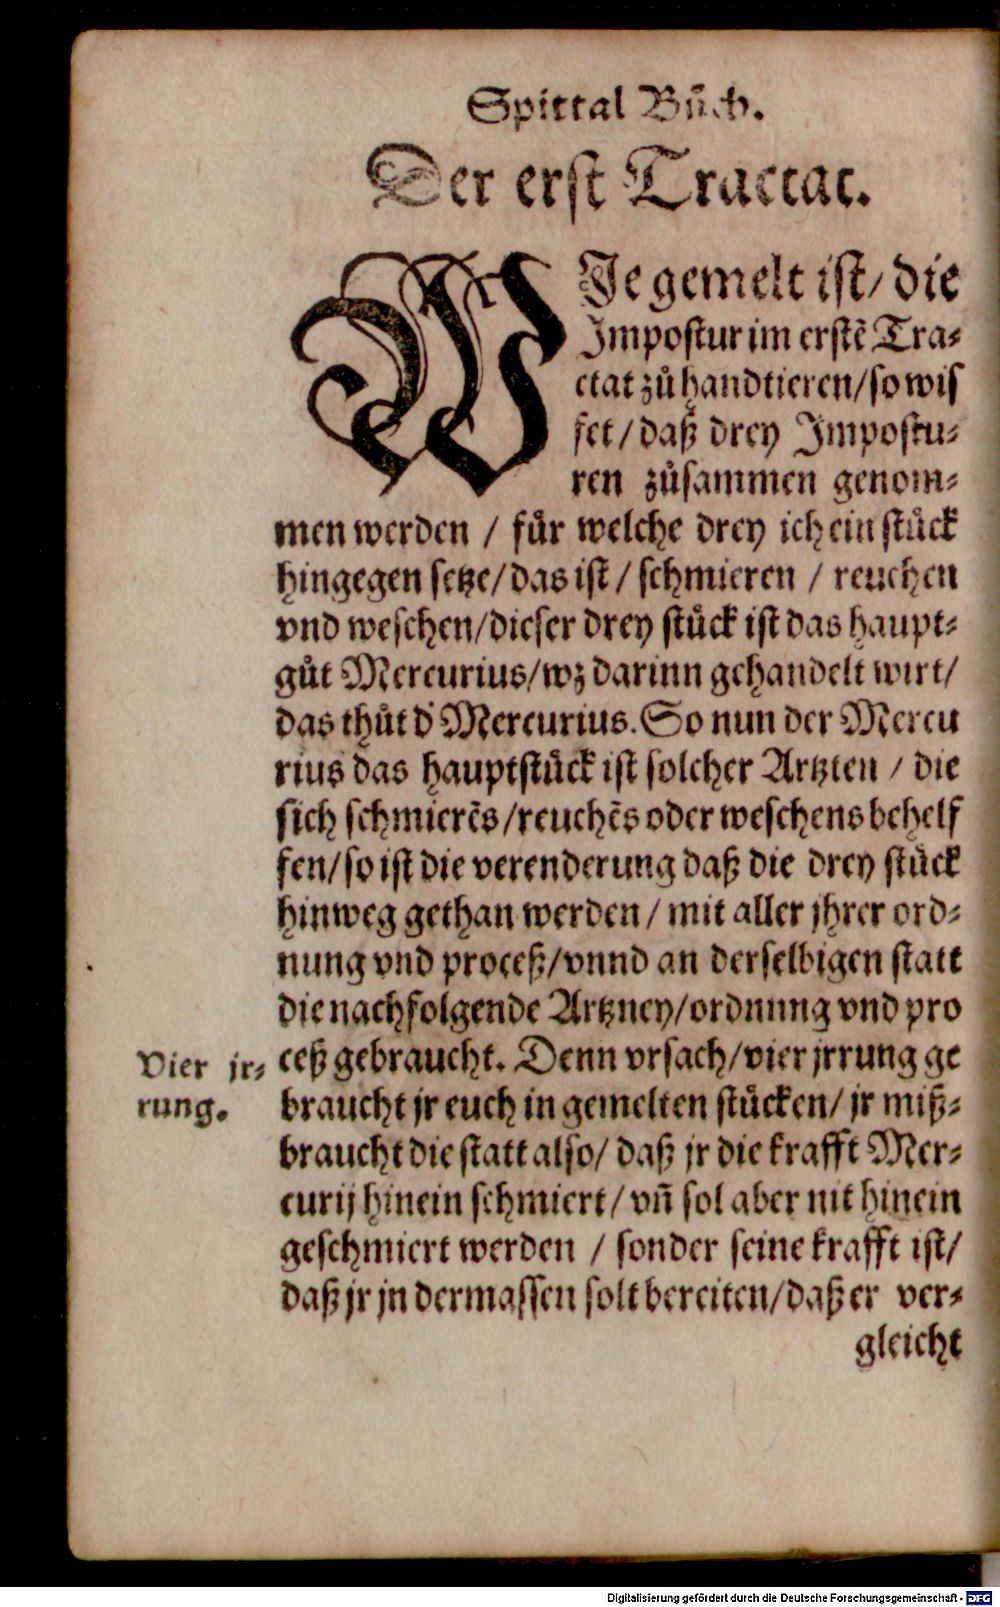 Spittal Bůch.
Der erst Tractat.
WJe gemelt ist/ die
Jmpostur im erstẽ Tra-
ctat zů handtieren/so wis
set/daß drey Jmpostu-
ren zůsammen genom-
men werden / für welche drey ich ein stück
hingegen setze/das ist/ schmieren / reuchen
vnd weschen/dieser drey stück ist das haupt-
gůt Mercurius/wz darinn gehandelt wirt/
das thůt d' Mercurius. So nun der Mercu
rius das hauptstück ist solcher Artzten / die
sich schmierẽs/reuchẽs oder weschens behelf
fen/so ist die verenderung daß die drey stück
hinweg gethan werden / mit aller jhrer ord-
nung vnd proceß/vnnd an derselbigen statt
die nachfolgende Artzney/ordnung vnd pro
ceß gebraucht. Denn vrsach/vier jrrung ge
braucht jr euch in gemelten stücken/ jr miß-
braucht die statt also/ daß jr die krafft Mer-
curij hinein schmiert/ vñ sol aber nit hinein
geschmiert werden / sonder seine krafft ist/
daß jr jn dermassen solt bereiten/daß er ver-
gleicht
Vier jr-
rung.
Digitalisierung gefördert durch die Deutsche Forschungsgemeinschaft - DFG